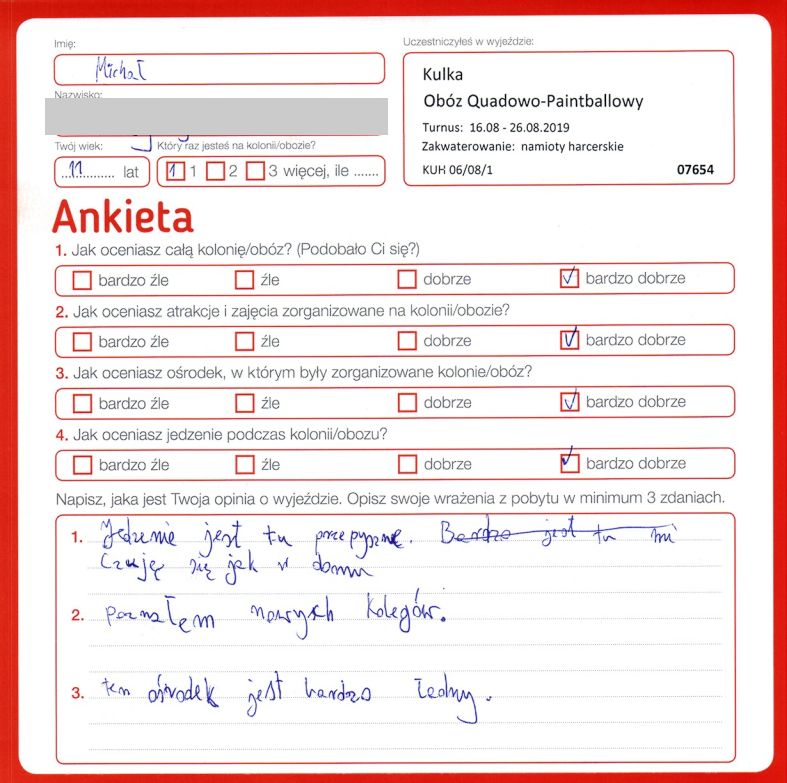 Imię:
Uczestniczyłeś w wyjeździe:
Michał
Kulka
Obóz Quadowo-Paintballowy
Nazwisko:
Turnus: 16.08 - 26.08.2019
Twój wiek: Który raz jesteś na kolonii/obozie?
Zakwaterowanie: namioty harcerskie
11 lat 1 1 2 3 więcej, ile .......
KUH 06/08/1 07654
Ankieta
1. Jak oceniasz całą kolonię/obóz? (Podobało Ci się?)
bardzo źle źle dobrze bardzo dobrze
2. Jak oceniasz atrakcje i zajęcia zorganizowane na kolonii/obozie?
bardzo źle źle dobrze bardzo dobrze
3. Jak oceniasz ośrodek, w którym były zorganizowane kolonie/obóz?
bardzo źle źle dobrze bardzo dobrze
4. Jak oceniasz jedzenie podczas kolonii/obozu?
bardzo źle źle dobrze bardzo dobrze
Napisz, jaka jest Twoja opinia o wyjeździe. Opisz swoje wrażenia z pobytu w minimum 3 zdaniach.
1. Jedzenie jest tu przepyszne. Bardzo jest tu mi
Czuję się jak w domu
2. poznałem nowych kolegów.
3. ten ośrodek jest bardzo ładny.